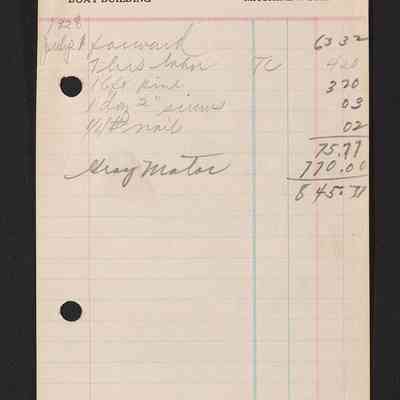 BOAT BUILDING
1928
July 1 Forward 63 32
7 hrs labor TC 920
16 ft pine 320
1 doz 2" screws 03
1/4 # nails 02
75.77
Gray Motor 770.00
845.77